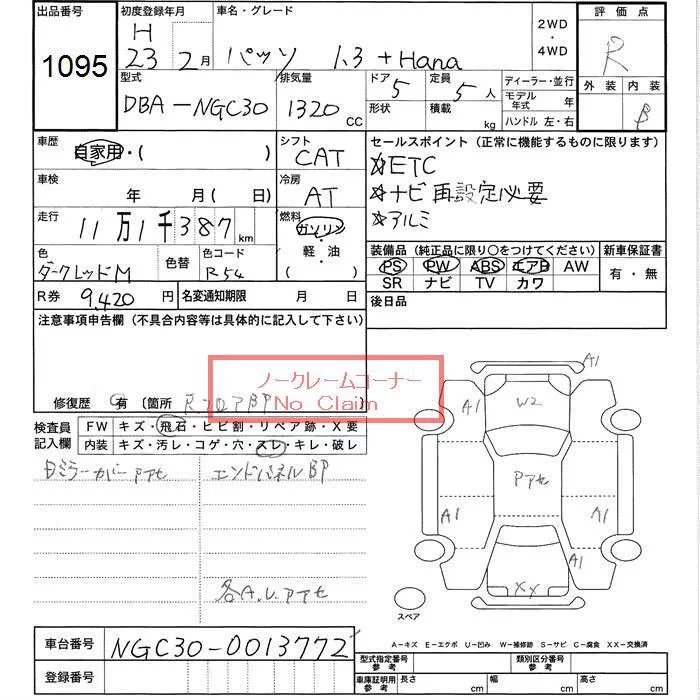 出品番号
1095
初度登録年月
H
23 2月
車名・グレード
パッソ 1.3 +Hana
2WD
・
4WD
評価点
R
外装 内装
B
型式
DBA-NGC30
排気量
1320 CC
ドア 5
形状
定員 5人
積載 kg
ディーラー・並行
モデル年式 年
ハンドル 左・右
車歴
自家用・( )
シフト
CAT
セールスポイント(正常に機能するものに限ります)
☆ETC
☆ナビ 再設定必要
☆アルミ
車検
年 月( 日)
冷房
AT
走行
11万1千387km
燃料
ガソリン
軽・油
( )
色
ダークレッドM
色替
色コード
R54
装備品(純正品に限り○をつけてください)
PS PW ABS エアB AW
SR ナビ TV カワ
新車保証書
有・無
R券 9,420円
名変通知期限 月 日
後日品
注意事項申告欄(不具合内容等は具体的に記入して下さい)
ノークレームコーナー
No Claim
修復歴 有 〔箇所 R.フロアBP 〕
検査員
記入欄
FW キズ・飛石・ヒビ割・リペア跡・X要
内装 キズ・汚レ・コゲ・穴・スレ・キレ・破レ
ミラーカバーアセ
エンドパネルBP
各A.U.アアセ
A1
A1 W2 A1
アアセ
A1 A1
A1
XX
スペア
A-キズ E-エクボ U-凹み W-補修跡 S-サビ C-腐食 XX-交換済
車台番号
NGC30-0013772
登録番号
型式指定番号
参考
類別区分番号
参考
車庫証明用
参考
長さ cm 幅 cm 高さ cm